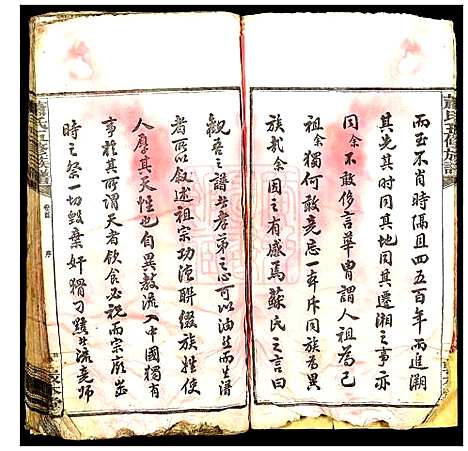 而至不肖時隔且四五百年而追溯
其先其時同其地同其遷湘之事亦
同余不敢侈言華胄謂人祖為己
祖余獨何敢竟忘一本斥同族為異
族乎余因之有感焉蘇氏之言曰
觀吾之譜者孝弟之心可以油然而生譜
者所以叙述祖宗功德聯綴族姓使
人厚其天性也自異教流入中國獨有
事於其所謂天者飲食必祝而宗廟歲
時之祭一切毀棄奸猾刁蹟之流竟師
氏五修族譜
卷首
序